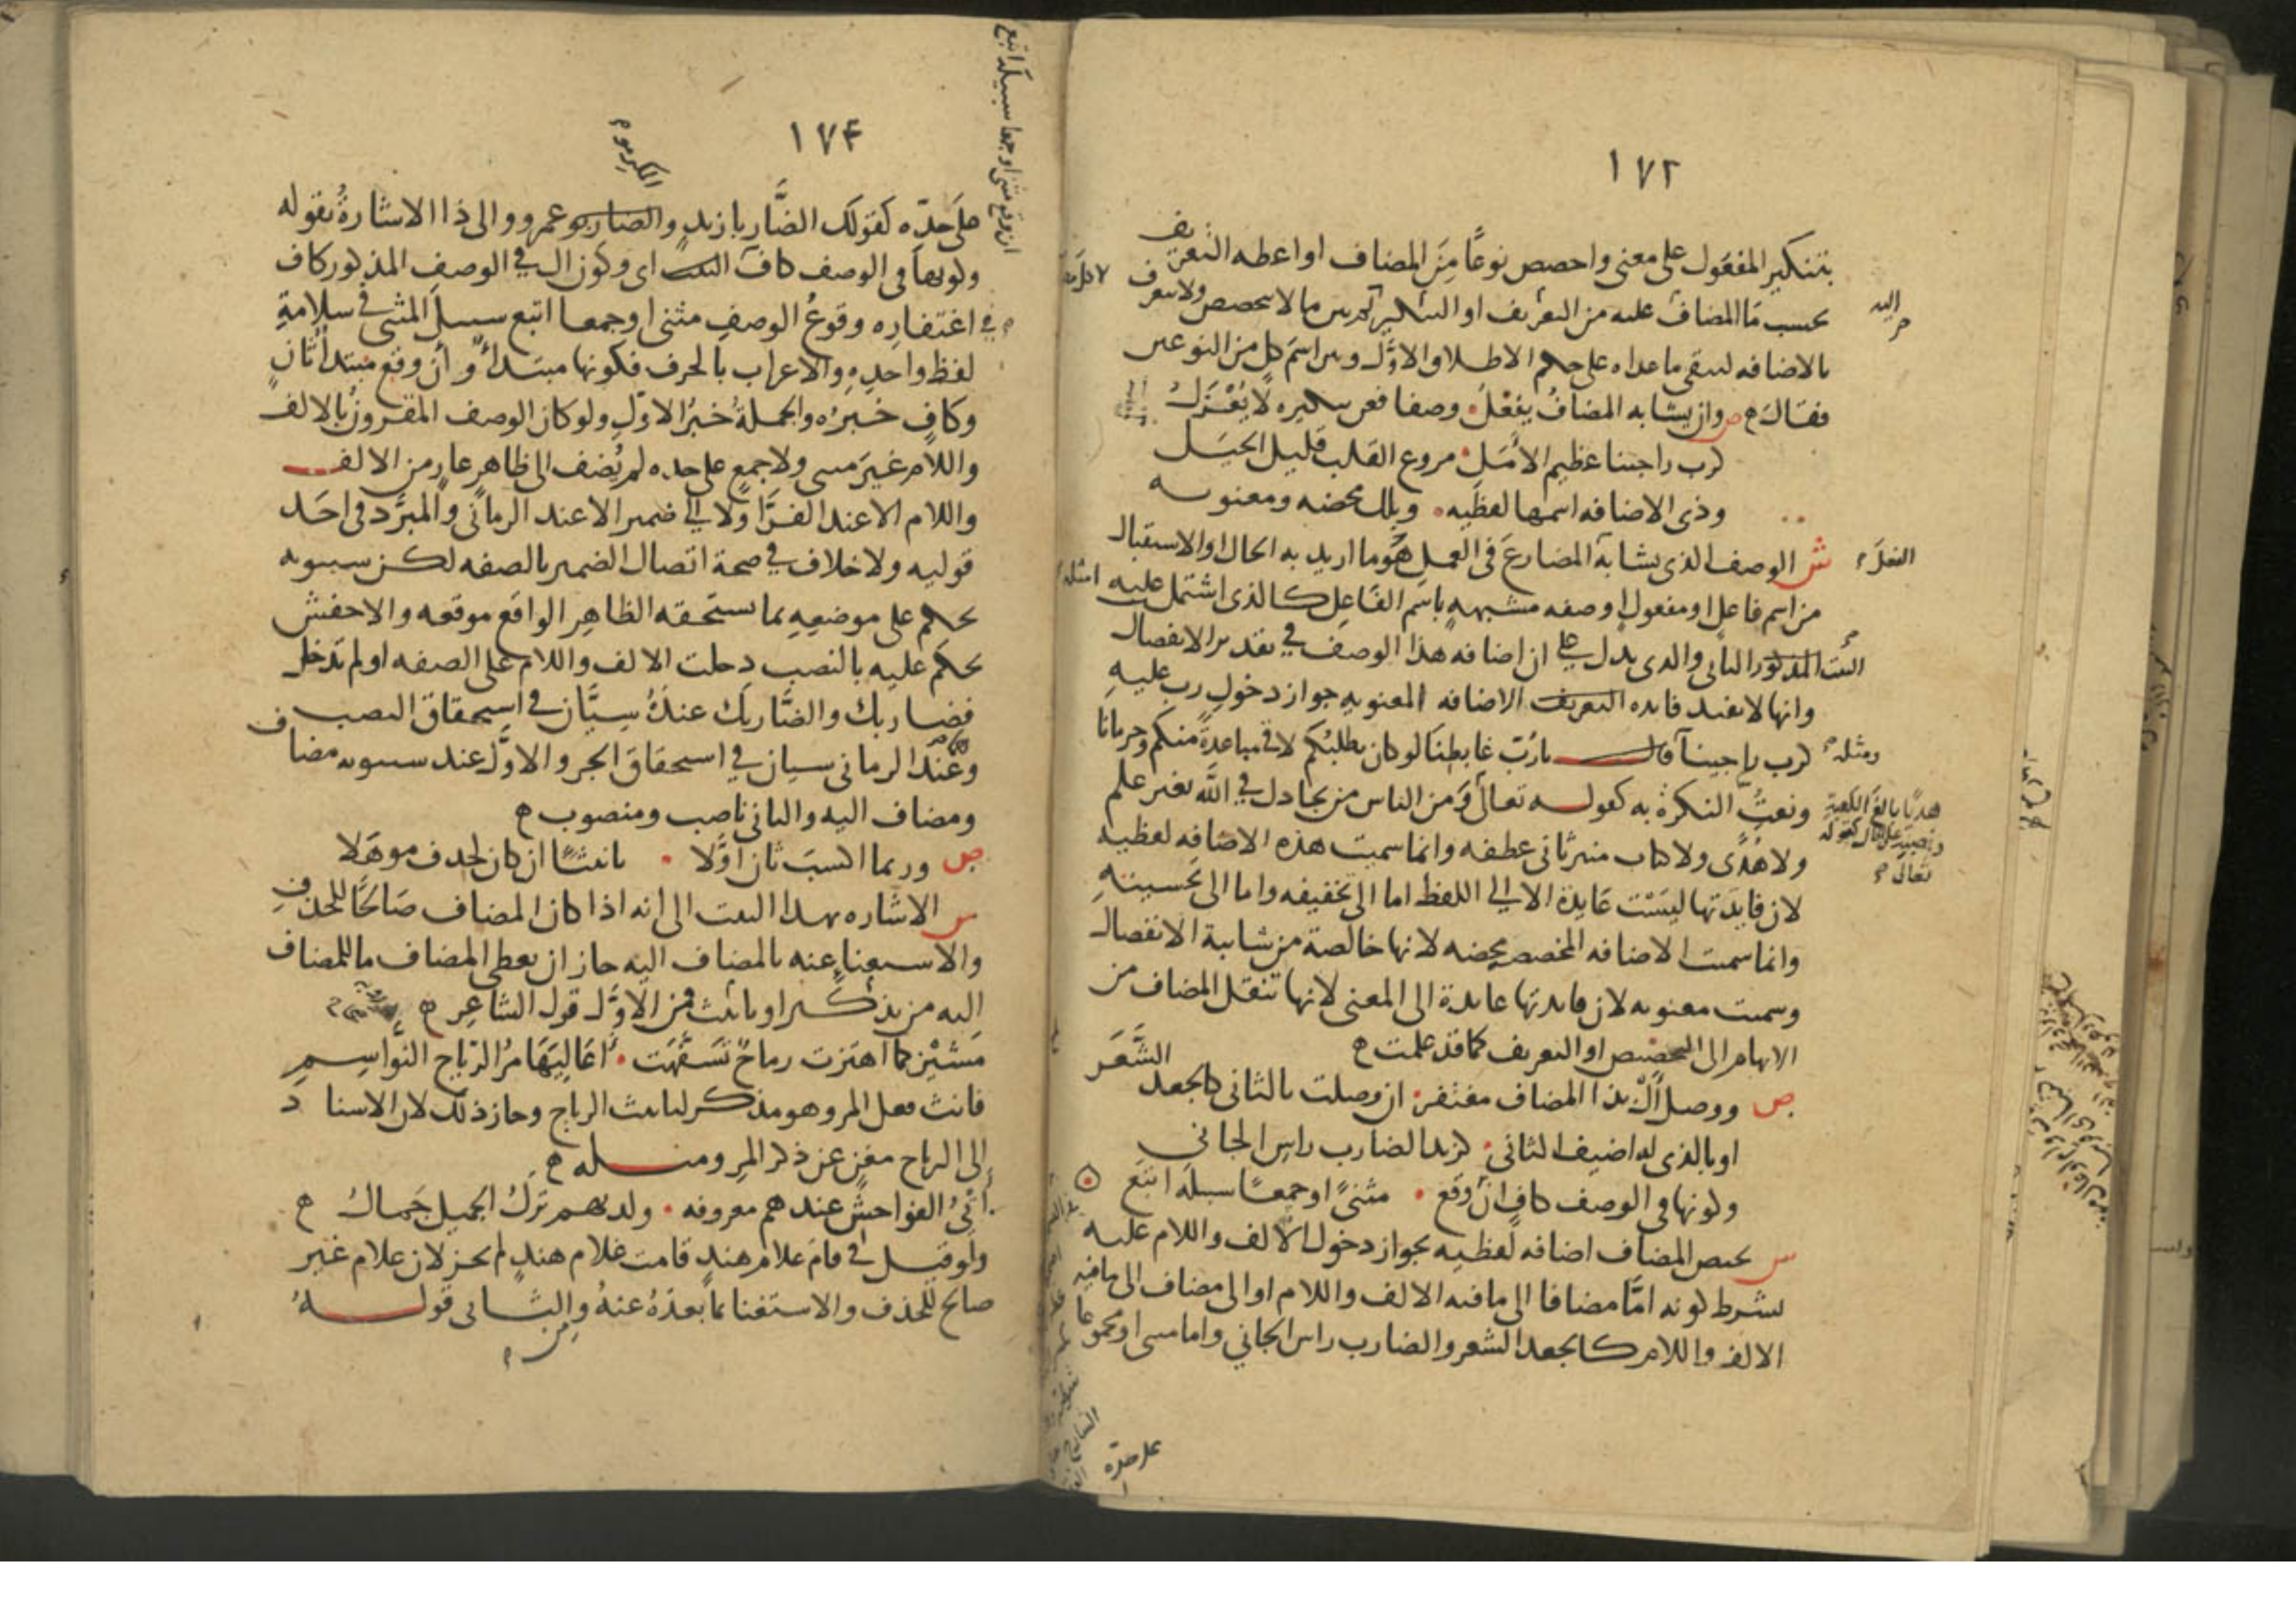 ١٧٢
بتنكير المفعول على معنى واخصص نوعًا مِنَ المضاف او اعطه التعريف
بحسب مَا المضاف عليه من التعريف او التنكير ما لا يتخصص ولا يتعرف
بالاضافه ليبقى ما عداه على حكم الاطلاق الاوّل وبين اسمَ كل من النوعين
فقال ص وان يشابه المضافُ يفعلُ وصفا فعن تنكيره لا يُعْزَلُ
كرب راجينا عظيم الأمل مروع القلب قليل الحيل
وذى الاضافه اسمها لفظيه وتلك محضه ومعنويه
ش الوصف الذى يشابه المضارعَ فى العمل هُو ما اريد به الحال او الاستقبال
من اسم فاعل او مفعول او صفه مشبهه باسم الفاعل كالذى اشتمل عليه
البيت المذكور الثانى والذى يدل على ان اضافه هذا الوصف في تقدير الانفصال
وانها لا تفيد فايده التعريف الاضافه المعنويه جواز دخول رب عليه
كرب راجينا قال يا رُبَّ غابطنا لو كان يطلبُكم لاقى مباعدةً منكم وحرمانا
ونعتُ النكرة به كقوله تعالى وَمن الناس من يجادل في الله بغير علم
ولا هُدًى ولا كتاب منير ثانى عطفه وانما سميت هذه الاضافه لفظيه
لان فايدَتها ليسَت عَايدة الا الي اللفظ اما الى تخفيفه واما الى تحسينهِ
وانما سميت الاضافه المخصصه محضه لانها خالصة من شايبة الانفصال
وسميت معنويه لان فايدتها عايدة الى المعنى لانها تنقل المضاف من
الابهام الى التخصيص او التعريف كما قد علمت
ص ووصل أَلْ بذا المضاف مغتفر ان وصلت بالثانى كالجعد الشَّعَر
او بالذى له اضيف الثاني كزيد الضارب راس الجاني
وكونها في الوصف كافٍ ان وقع مثنىً او جمعًا سبيله اتبَع
ش يختص المضاف اضافه لفظيه بجواز دخول الالف واللام عليه
بشرط كونه امَّا مضافا الى ما فيه الالف واللام او الى مضاف الى ما فيه
الالف واللام كالجعد الشعر والضارب راس الجاني واما مثنى او مجموعا
على حدّه
الفعل
ومثله
هديًا بالغ الكعبة
ونصبه على الحال كقوله
تعالى
١٧٤
المكرمو
ان وقع مثنى او جمعا سبيله اتبع
على حدّه كقولك الضَّاربا زيدٍ والضاربو عمرو والى ذا الاشارةُ بقوله
وكونها في الوصف كاف البيت اى وكون ال في الوصف المذكور كاف
في اغتفاره وقوعُ الوصفِ مثنى او جمعا اتبع سبيل المثنى في سلامة
لفظ واحدِهِ والاعراب بالحرف فكونها مبتدأ وأن وقع مبتدأ ثانٍ
وكافٍ خبرُه والجملةُ خبرُ الاوّلِ ولو كان الوصف المقرون بالالف
واللام غيرَ مثنى ولا جمع على حده لم يُضف الى ظاهر عارٍ من الالف
واللام الا عند الفرَّا وَلا الي ضمير الا عند الرمانى والمبرّد في احَد
قوليه ولا خلاف في صحة اتصال الضمير بالصفه لكن سيبويه
يحكم على موضعِهِ بما يستحقه الظاهِر الواقع موقعه والاخفش
يحكم عليه بالنصب دخلت الالف واللام على الصفه او لم تدخل
فضاربك والضَّاربك عندَهُ سِيَّان في استحقاق النصب
وعند الرمانى سيان في استحقاق الجر والاوّل عند سيبويه مضاف
ومضاف اليه والثانى ناصب ومنصوب
ص وربما اكسبَ ثان اوَّلا تانيثًا ان كان لحذف موهَلا
ش الاشاره بهذا البيت الى انه اذا كان المضاف صَالحًا للحذفِ
والاستغناء عنه بالمضاف اليه جاز ان يعطى المضاف ما للمضاف
اليه من تذكير او تانيث فمن الاوَّل قول الشاعِر
مَشَيْن كما اهتزت رماحٌ تَسَفَّهَت أعَالِيَهَا مرُّ الرّياح النَّواسِمِ
فانث فعل المر وهو مذكر لتانيث الرياح وجاز ذلك لان الاسناد
الى الرياح مغنٍ عن ذكر المرِ ومثله
أَتْيُ الفواحش عندهم معروفه ولديهم تركُ الجميل جَمالُ
ولو قيل في قام غلام هندٍ قامت غلام هندٍ لم يجز لان غلام غير
صالح للحذف والاستغنا بما بعدَهُ عنهُ والثانى قولهُ